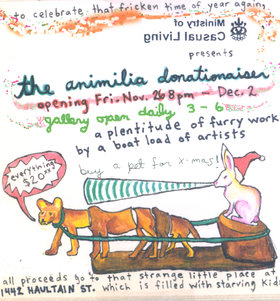 to celebrate that fricken time of year again,
Ministry of
Casual Living
presents
the animilia donationaiser
opening Fri. Nov. 26 8pm - Dec. 2
gallery open daily 3 - 6
a plentitude of furry work
by a boat load of artists
buy a pet for x-mas!
everything
$20
all proceeds go to that strange little place at
1442 HAULTAIN ST. which is filled with starving kids